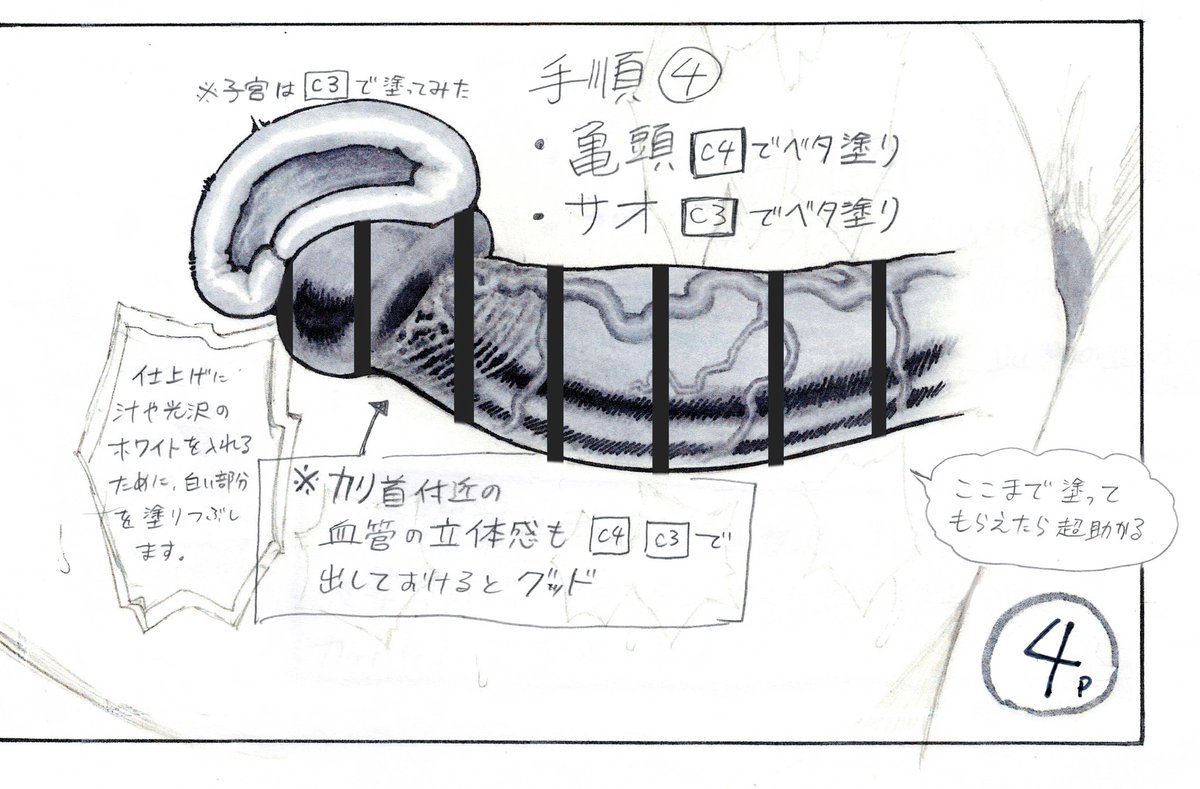 ※子宮は C3 で塗ってみた
手順④
・亀頭 C4 でベタ塗り
・サオ C3 でベタ塗り
仕上げに
汁や光沢の
ホワイトを入れる
ために、白い部分
を塗りつぶし
ます。
※カリ首付近の
血管の立体感も C4 C3 で
出しておけるとグッド
ここまで塗って
もらえたら超助かる
4P